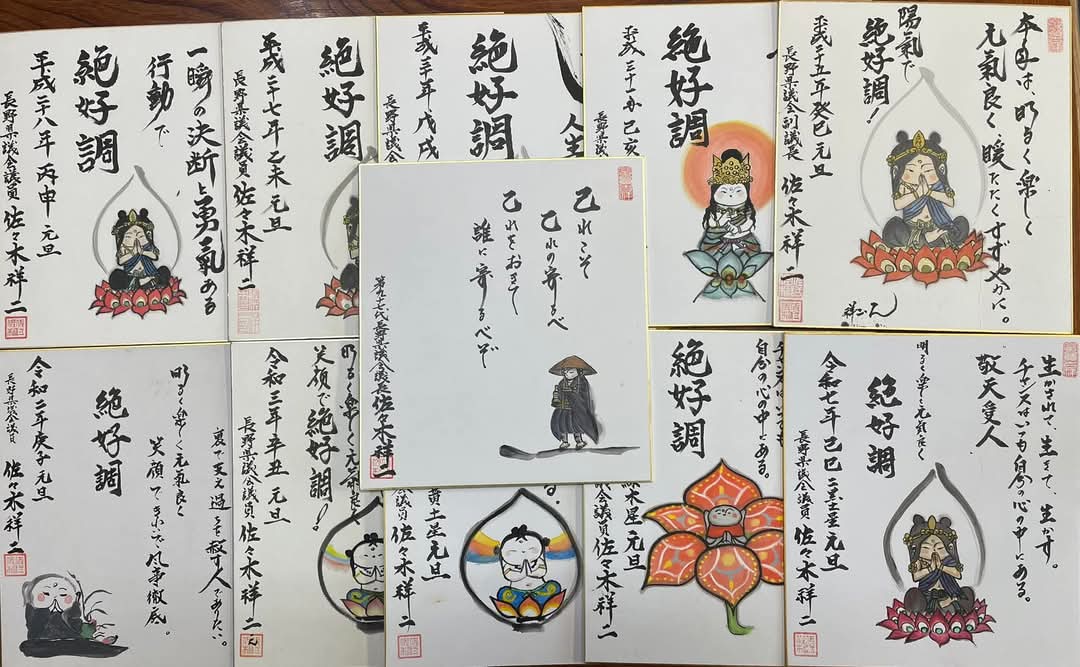 一瞬の決断と勇氣ある
行動で
絶好調
平成二十八年 丙申 元旦
長野県議会議員 佐々木祥二
絶好調
平成二十七年 乙未 元旦
長野県議会議員 佐々木祥二
人生
絶好調
平成三十年 戊戌
長野県議会
絶好調
平成三十一年 己亥
長野県議会
本年は、明るく楽しく
元氣良く、暖たたくすずやかに。
陽氣で
絶好調!
平成二十五年癸巳 元旦
長野県議会副議長 佐々木祥二
己れこそ
己れの寄るべ
己れをおきて
誰に寄るべぞ
長野県議会議長 佐々木祥二
裏で支え過ちを赦す人でありたい。
明るく楽しく元氣良く
絶好調
令和二年庚子 元旦
長野県議会議員 佐々木祥二
明るく楽しく元氣良く
笑顔で絶好調!
令和三年 辛丑 元旦
長野県議会議員 佐々木祥二
黄土星 元旦
議会議員 佐々木祥二
自分の心の中にある。
絶好調
緑木星 元旦
議会議員 佐々木祥二
生かされて、生きて、生かす。
チャンスはいつも自分の心の中にある。
敬天愛人
明るく楽しく元氣良く
絶好調
令和七年 乙巳
長野県議会議員 佐々木祥二